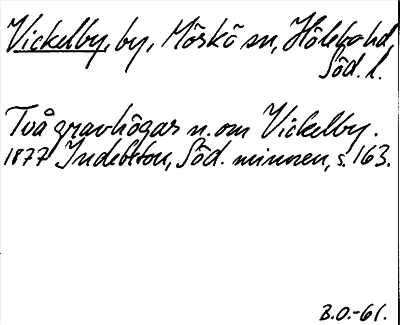 Vickelby, by, Mörkö sn, Hölebo hd,
Söd. l.
Två gravhögar n. om Vickelby.
1877 Indebetou, Söd. minnen, s. 163.
B.O.-61.